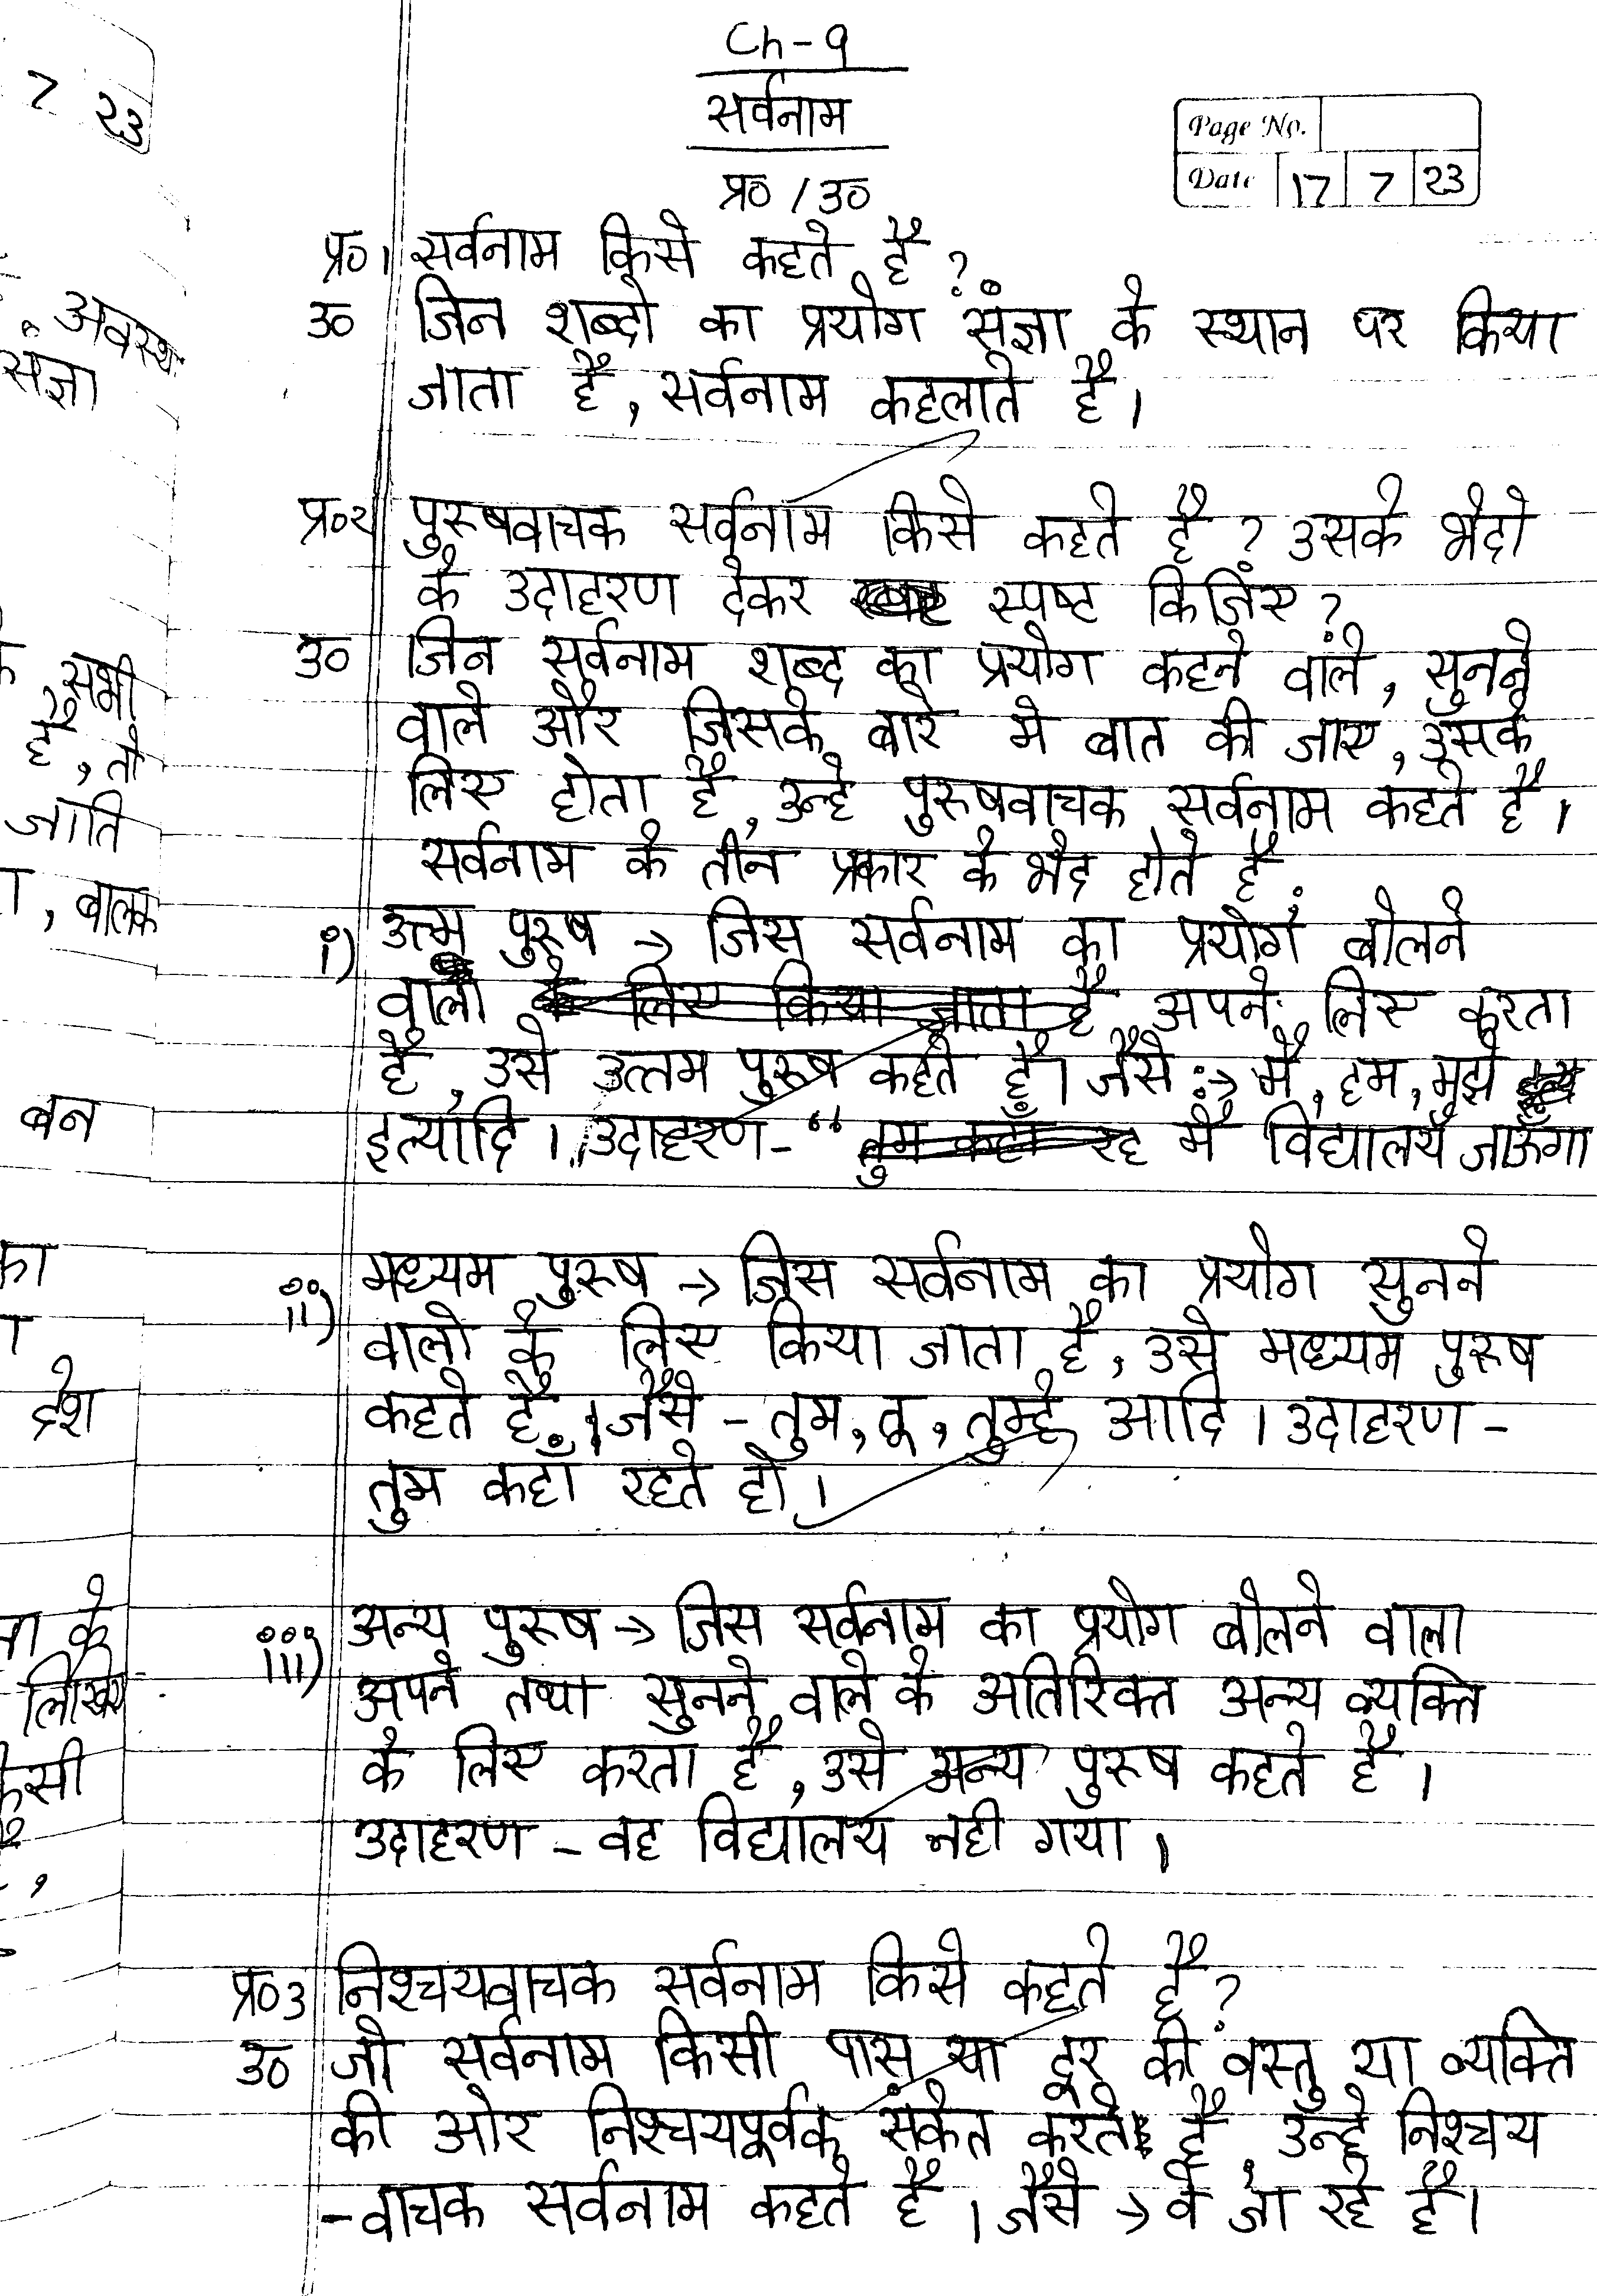 Ch-9
सर्वनाम
Page No.
Date 17 7 23
प्र० / उ०
प्र०1 सर्वनाम किसे कहते है ?
उ० जिन शब्दो का प्रयोग संज्ञा के स्थान पर किया
जाता है, सर्वनाम कहलाते है।
प्र०२ पुरुषवाचक सर्वनाम किसे कहते है ? उसके भेदो
के उदाहरण देकर स्पष्ट किजिए ?
उ० जिन सर्वनाम शब्द का प्रयोग कहने वाले, सुनने
वाले और जिसके बारे मे बात की जाए, उसके
लिए होता है, उन्हे पुरुषवाचक सर्वनाम कहते है।
सर्वनाम के तीन प्रकार के भेद होते है.
i) उत्म पुरुष → जिस सर्वनाम का प्रयोग बोलने
वाला के लिए किया जाता है अपने लिए करता
है, उसे उत्तम पुरुष कहते है। जैसे :→ मै, हम, मुझे
इत्यादि। उदाहरण - “ तुम कहाँ रह मै विद्यालय जाऊँगा
ii) मध्यम पुरुष → जिस सर्वनाम का प्रयोग सुनने
वालो के लिए किया जाता है, उसे मध्यम पुरुष
कहते है। जैसे - तुम, तू, तुम्हे आदि। उदाहरण -
तुम कहाँ रहते हो।
iii) अन्य पुरुष → जिस सर्वनाम का प्रयोग बोलने वाला
अपने तथा सुनने वाले के अतिरिक्त अन्य व्यक्ति
के लिए करता है, उसे अन्य पुरुष कहते है।
उदाहरण - वह विद्यालय नही गया।
प्र०3 निश्चयवाचक सर्वनाम किसे कहते है ?
उ० जो सर्वनाम किसी पास या दूर की वस्तु या व्यक्ति
की ओर निश्चयपूर्वक संकेत करते है, उन्हे निश्चय
-वाचक सर्वनाम कहते है। जैसे → वे जा रहे है।
7 23
अवस्था
संज्ञा
सभी
है, तो
जाति
, बालक
बन
का
देश
के
लिखिए